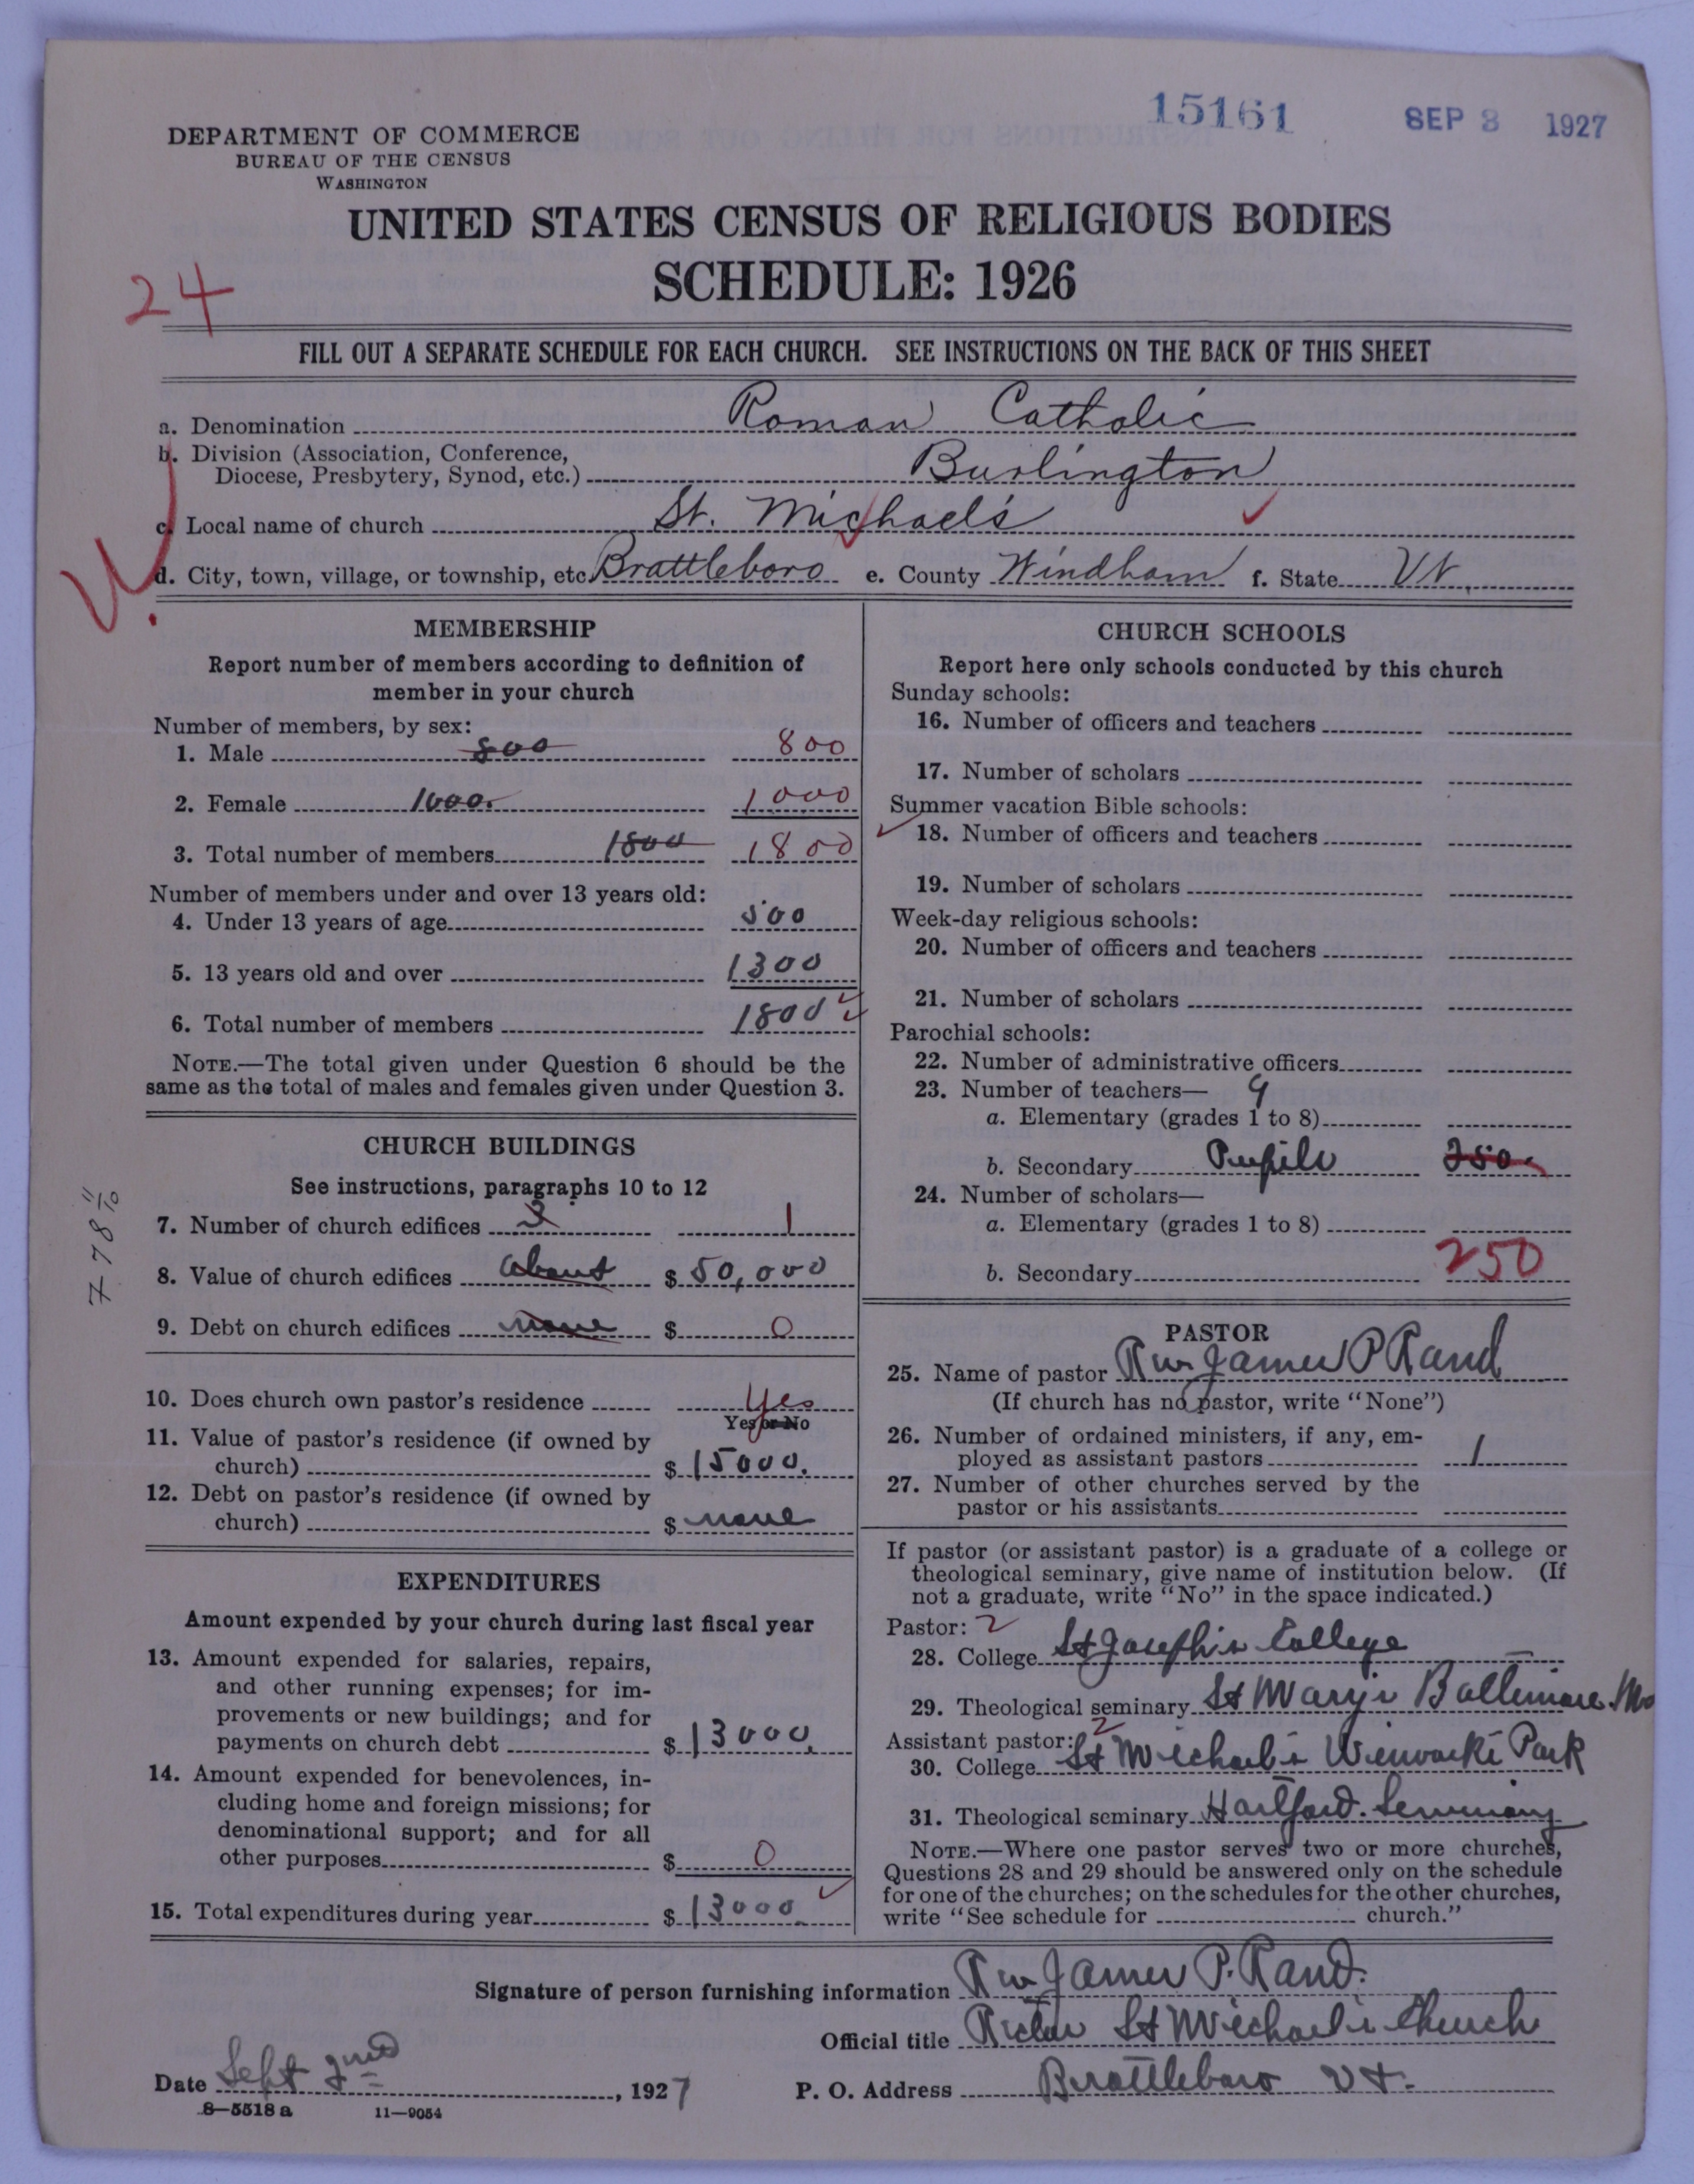 15161 SEP 3 1927
DEPARTMENT OF COMMERCE
BUREAU OF THE CENSUS
WASHINGTON
UNITED STATES CENSUS OF RELIGIOUS BODIES
SCHEDULE: 1926
24
FILL OUT A SEPARATE SCHEDULE FOR EACH CHURCH. SEE INSTRUCTIONS ON THE BACK OF THIS SHEET
a. Denomination Roman Catholic
b. Division (Association, Conference,
Diocese, Presbytery, Synod, etc.) Burlington
c. Local name of church St. Michael's
d. City, town, village, or township, etc. Brattleboro e. County Windham f. State Vt.
MEMBERSHIP
Report number of members according to definition of
member in your church
Number of members, by sex:
1. Male 800 800
2. Female 1000. 1000
3. Total number of members 1800 1800
Number of members under and over 13 years old:
4. Under 13 years of age 500
5. 13 years old and over 1300
6. Total number of members 1800
NOTE.—The total given under Question 6 should be the
same as the total of males and females given under Question 3.
CHURCH BUILDINGS
See instructions, paragraphs 10 to 12
7. Number of church edifices 3 1
8. Value of church edifices about $ 50,000
9. Debt on church edifices none $ 0
10. Does church own pastor's residence Yes
Yes or No
11. Value of pastor's residence (if owned by
church) $ 15000.
12. Debt on pastor's residence (if owned by
church) $ none
EXPENDITURES
Amount expended by your church during last fiscal year
13. Amount expended for salaries, repairs,
and other running expenses; for im-
provements or new buildings; and for
payments on church debt $ 13000.
14. Amount expended for benevolences, in-
cluding home and foreign missions; for
denominational support; and for all
other purposes $ 0
15. Total expenditures during year $ 13000.
CHURCH SCHOOLS
Report here only schools conducted by this church
Sunday schools:
16. Number of officers and teachers
17. Number of scholars
Summer vacation Bible schools:
18. Number of officers and teachers
19. Number of scholars
Week-day religious schools:
20. Number of officers and teachers
21. Number of scholars
Parochial schools:
22. Number of administrative officers
23. Number of teachers— 9
a. Elementary (grades 1 to 8)
b. Secondary Pupils 250.
24. Number of scholars—
a. Elementary (grades 1 to 8)
b. Secondary 250
PASTOR
25. Name of pastor Rev James P Rand
(If church has no pastor, write "None")
26. Number of ordained ministers, if any, em-
ployed as assistant pastors 1
27. Number of other churches served by the
pastor or his assistants
If pastor (or assistant pastor) is a graduate of a college or
theological seminary, give name of institution below. (If
not a graduate, write "No" in the space indicated.)
Pastor: 2
28. College St Joseph's College
29. Theological seminary St Mary's Baltimore Md
Assistant pastor: 2
30. College St Michael's Winooski Park
31. Theological seminary Hartford. Seminary
NOTE.—Where one pastor serves two or more churches,
Questions 28 and 29 should be answered only on the schedule
for one of the churches; on the schedules for the other churches,
write "See schedule for church."
Signature of person furnishing information Rev James P. Rand.
Official title Rector St Michael's Church
Date Sept 2nd, 1927 P. O. Address Brattleboro Vt.
8—5518 a 11—9054